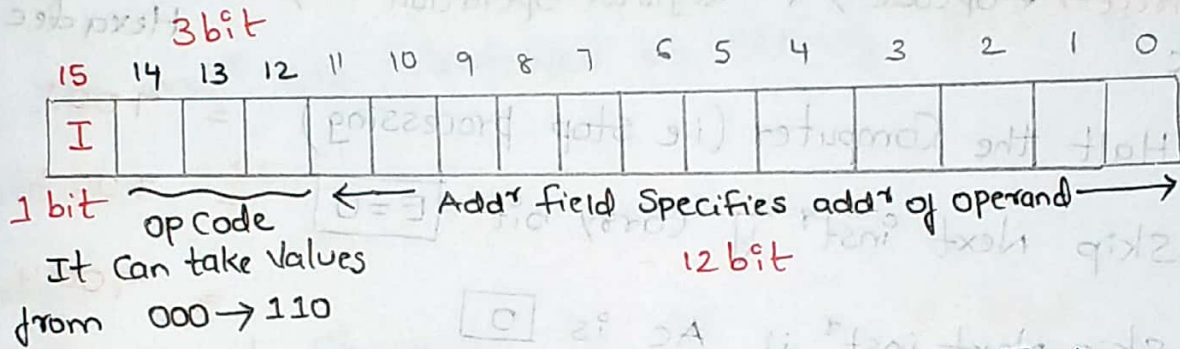 3 bit
15 14 13 12 11 10 9 8 7 6 5 4 3 2 1 0
I
1 bit opcode ← Addr field Specifies addr of operand →
It Can take Values 12 bit
from 000 → 110